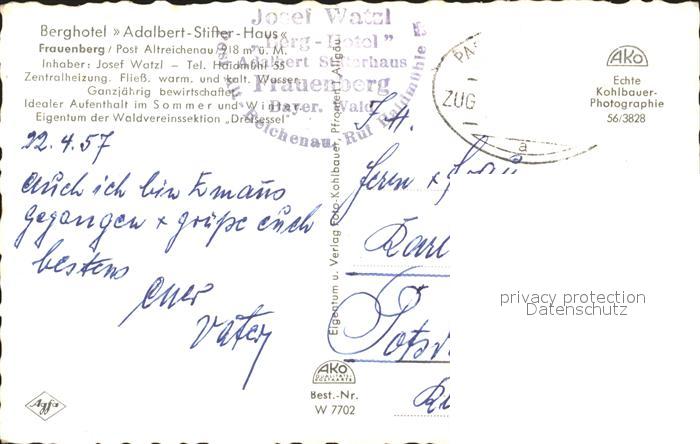 Berghotel »Adalbert-Stifter-Haus«
Frauenberg / Post Altreichenau 918 m ü. M.
Inhaber: Josef Watzl – Tel. Haidmühl 55
Zentralheizung. Fließ. warm. und kalt. Wasser.
Ganzjährig bewirtschaftet
Idealer Aufenthalt im Sommer und Winter
Eigentum der Waldvereinssektion „Dreisessel"
Josef Watzl
"Berg-Hotel"
Adalbert Stifterhaus
Frauenberg
Bayer. Wald
Post Reichenau, Ruf Haidmühle 55
PAS
ZUG
a
AKO
Echte
Kohlbauer-
Photographie
56/3828
22.4.57
Auch ich bin Emaus
gegangen + grüße euch
bestens
euer
Vater
Eigentum u. Verlag Foto-Kohlbauer, Pfronten / Allgäu
Herrn +
Karl
Ru
AKO
QUALITÄTS-
POSTKARTE
Best.-Nr.
W 7702
Agfa
privacy protection
Datenschutz